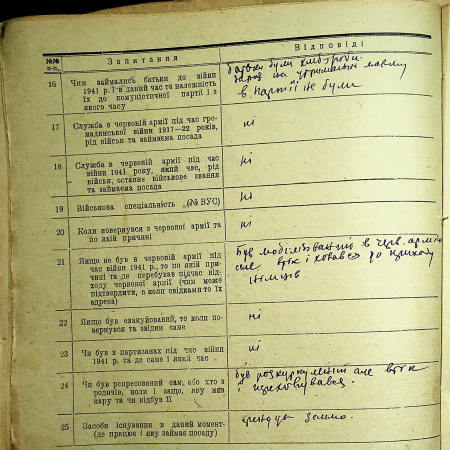 №№ п-п.
Запитання
Відповіді
16
Чим займались батьки до війни
1941 р. і в даний час та належність
їх до комуністичної партії і з
якого часу
батьки були хлібороби
зараз на утриманні
в партії не були
17
Служба в червоній армії під час гро-
мадянської війни 1917—22 років,
рід військ та займаєма посада
ні
18
Служба в червоній армії під час
війни 1941 року, який час, рід
військ, останнє військове звання
та займаєма посада
ні
19
Військова спеціальність (№ ВУС)
ні
20
Коли повернувся з червоної армії та
по якій причині
ні
21
Якщо не був в червоній армії під
час війни 1941 р., то по якій при-
чині та де перебував підчас від-
ходу червоної армії (чим може
підтвердити, а коли свідками то їх
адреса)
був мобілізований в черв. армію
але втік і ховався до приходу
німців.
22
Якщо був евакуйований, то коли по-
вернувся та звідки саме
ні
23
Чи був в партизанах під час війни
1941 р. та де саме і який час
ні
24
Чи був репресований сам, або хто з
родичів, коли і защо, яку мав
кару та чи відбув її
був розкуркулений але втік
і переховувався.
25
Засоби існування в даний момент-
(де працює і яку займає посаду)
землю.